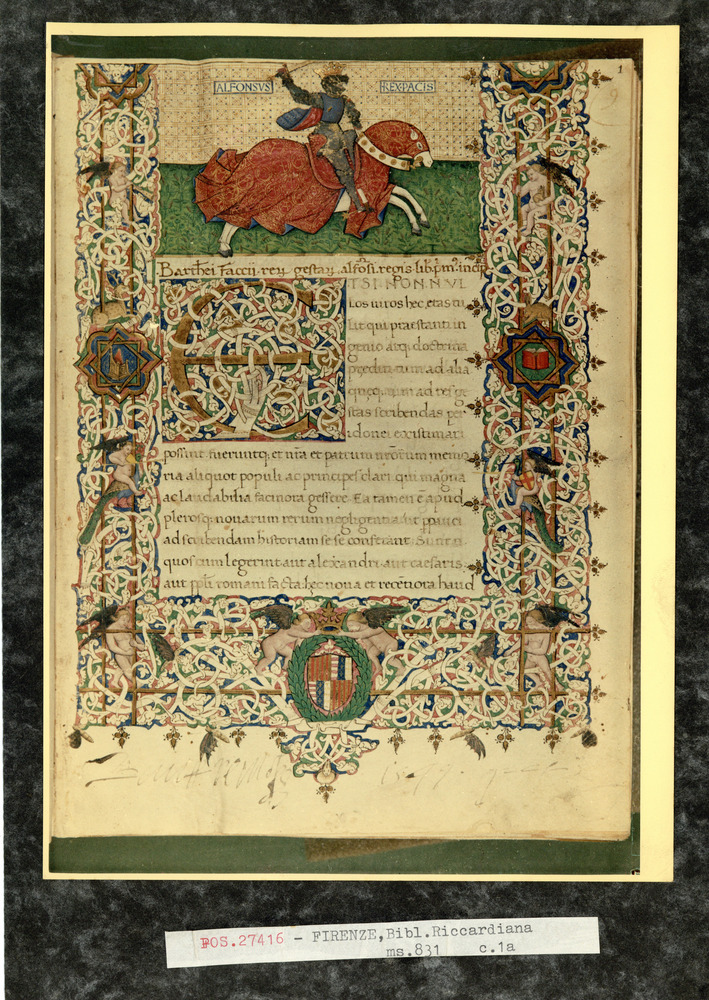 1
ALFONSVS REX PACIS
Barthei faccij rerӯ gestarӯ alfōsi regis lib. pm⁹. incip
ET SI NON NVL
los uiros hec etas tu
lit qui praestanti in
genio atq; doctrina
prediti tum ad alia
tum ad res ge
stas scribendas per
idonei existimari
possint. fueruntq; et nr̄a et patrum nr̄orum memo
ria aliquot populi ac principes clari qui magna
ac laudabilia facinora gessere. Ea tamen ē apud
plerosq; nouarum rerum negligentia ut ppauci
ad scribendam historiam se se conferant. Sunt
quos cum legerint aut alexandri aut caesaris
aut ppl̄i romani facta: hec noua et recētiora haud
FOS.27416 - FIRENZE,Bibl.Riccardiana
ms.831 c.1a